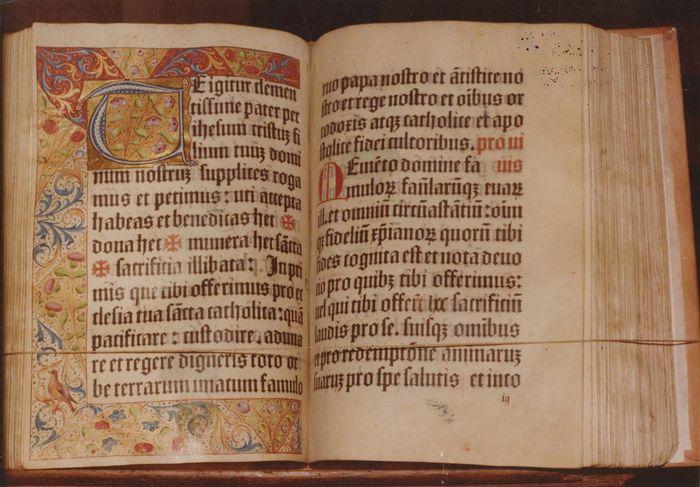 TE igitur clemen
tissime pater per
ihesum cristuz fi
lium tuuz domi
num nostruz supplices roga
mus et petimus: uti accepta
habeas et benedicas hec ✠
dona hec ✠ munera hec sācta
✠ sacrificia illibata: In pri
mis que tibi offerimus pro ec
clesia tua sācta catholica: quā
pacificare: custodire. aduna
re et regere digneris toto or
be terrarum vnacum famulo
tuo papa nostro et ātistite no
stro et rege nostro et oībus or
todoxis atqꝫ catholice et apo
stolice fidei cultoribus. pro ui
MEmēto domine fa uis
mulorꝝ famlarūqꝫ tuarꝝ
ill. et omniū circūastātiū: quoruꝫ
qꝫ fideliū xp̄ianorꝝ quorū tibi
fides cognita est et nota deuo
tio pro quibꝫ tibi offerimus:
uel qui tibi offerūt hoc sacrificiū
laudis pro se. suisqꝫ omībus
et pro redemptōne animaruꝫ
suaruꝫ pro spe salutis et inco
iij